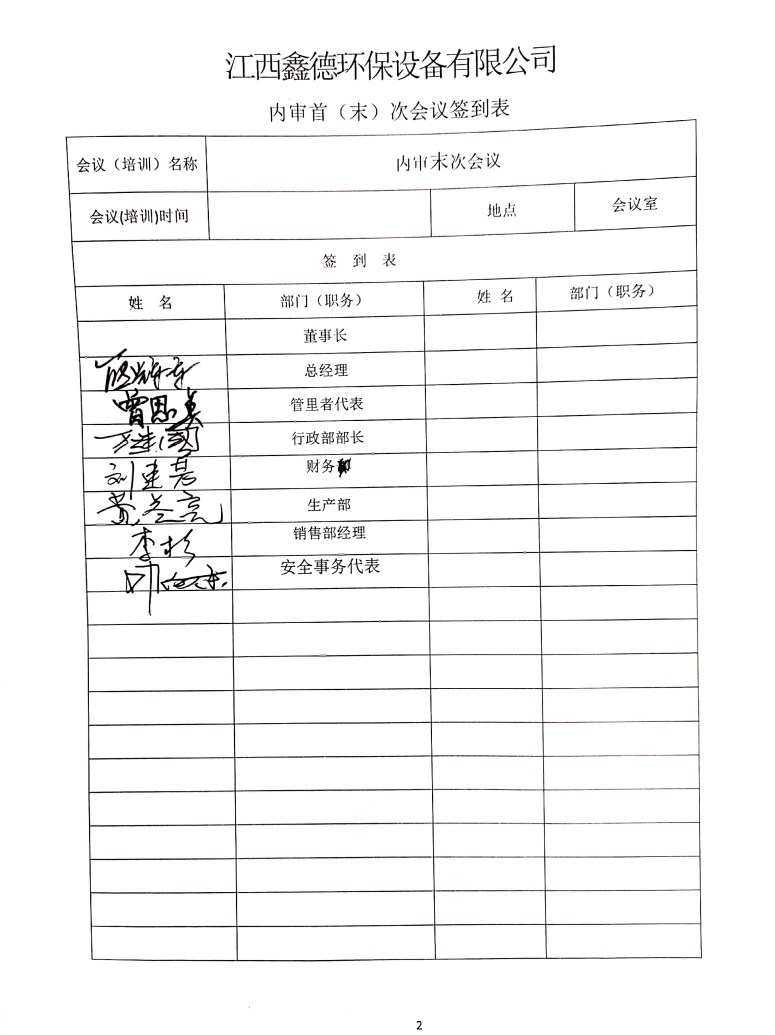 江西鑫德环保设备有限公司
内审首（末）次会议签到表
会议（培训）名称 内审末次会议
会议(培训)时间 地点 会议室
签 到 表
姓 名 部门（职务） 姓 名 部门（职务）
董事长
总经理
曾思美 管里者代表
万建国 行政部部长
刘建芳 财务
黄 亮 生产部
李彬 销售部经理
安全事务代表
2